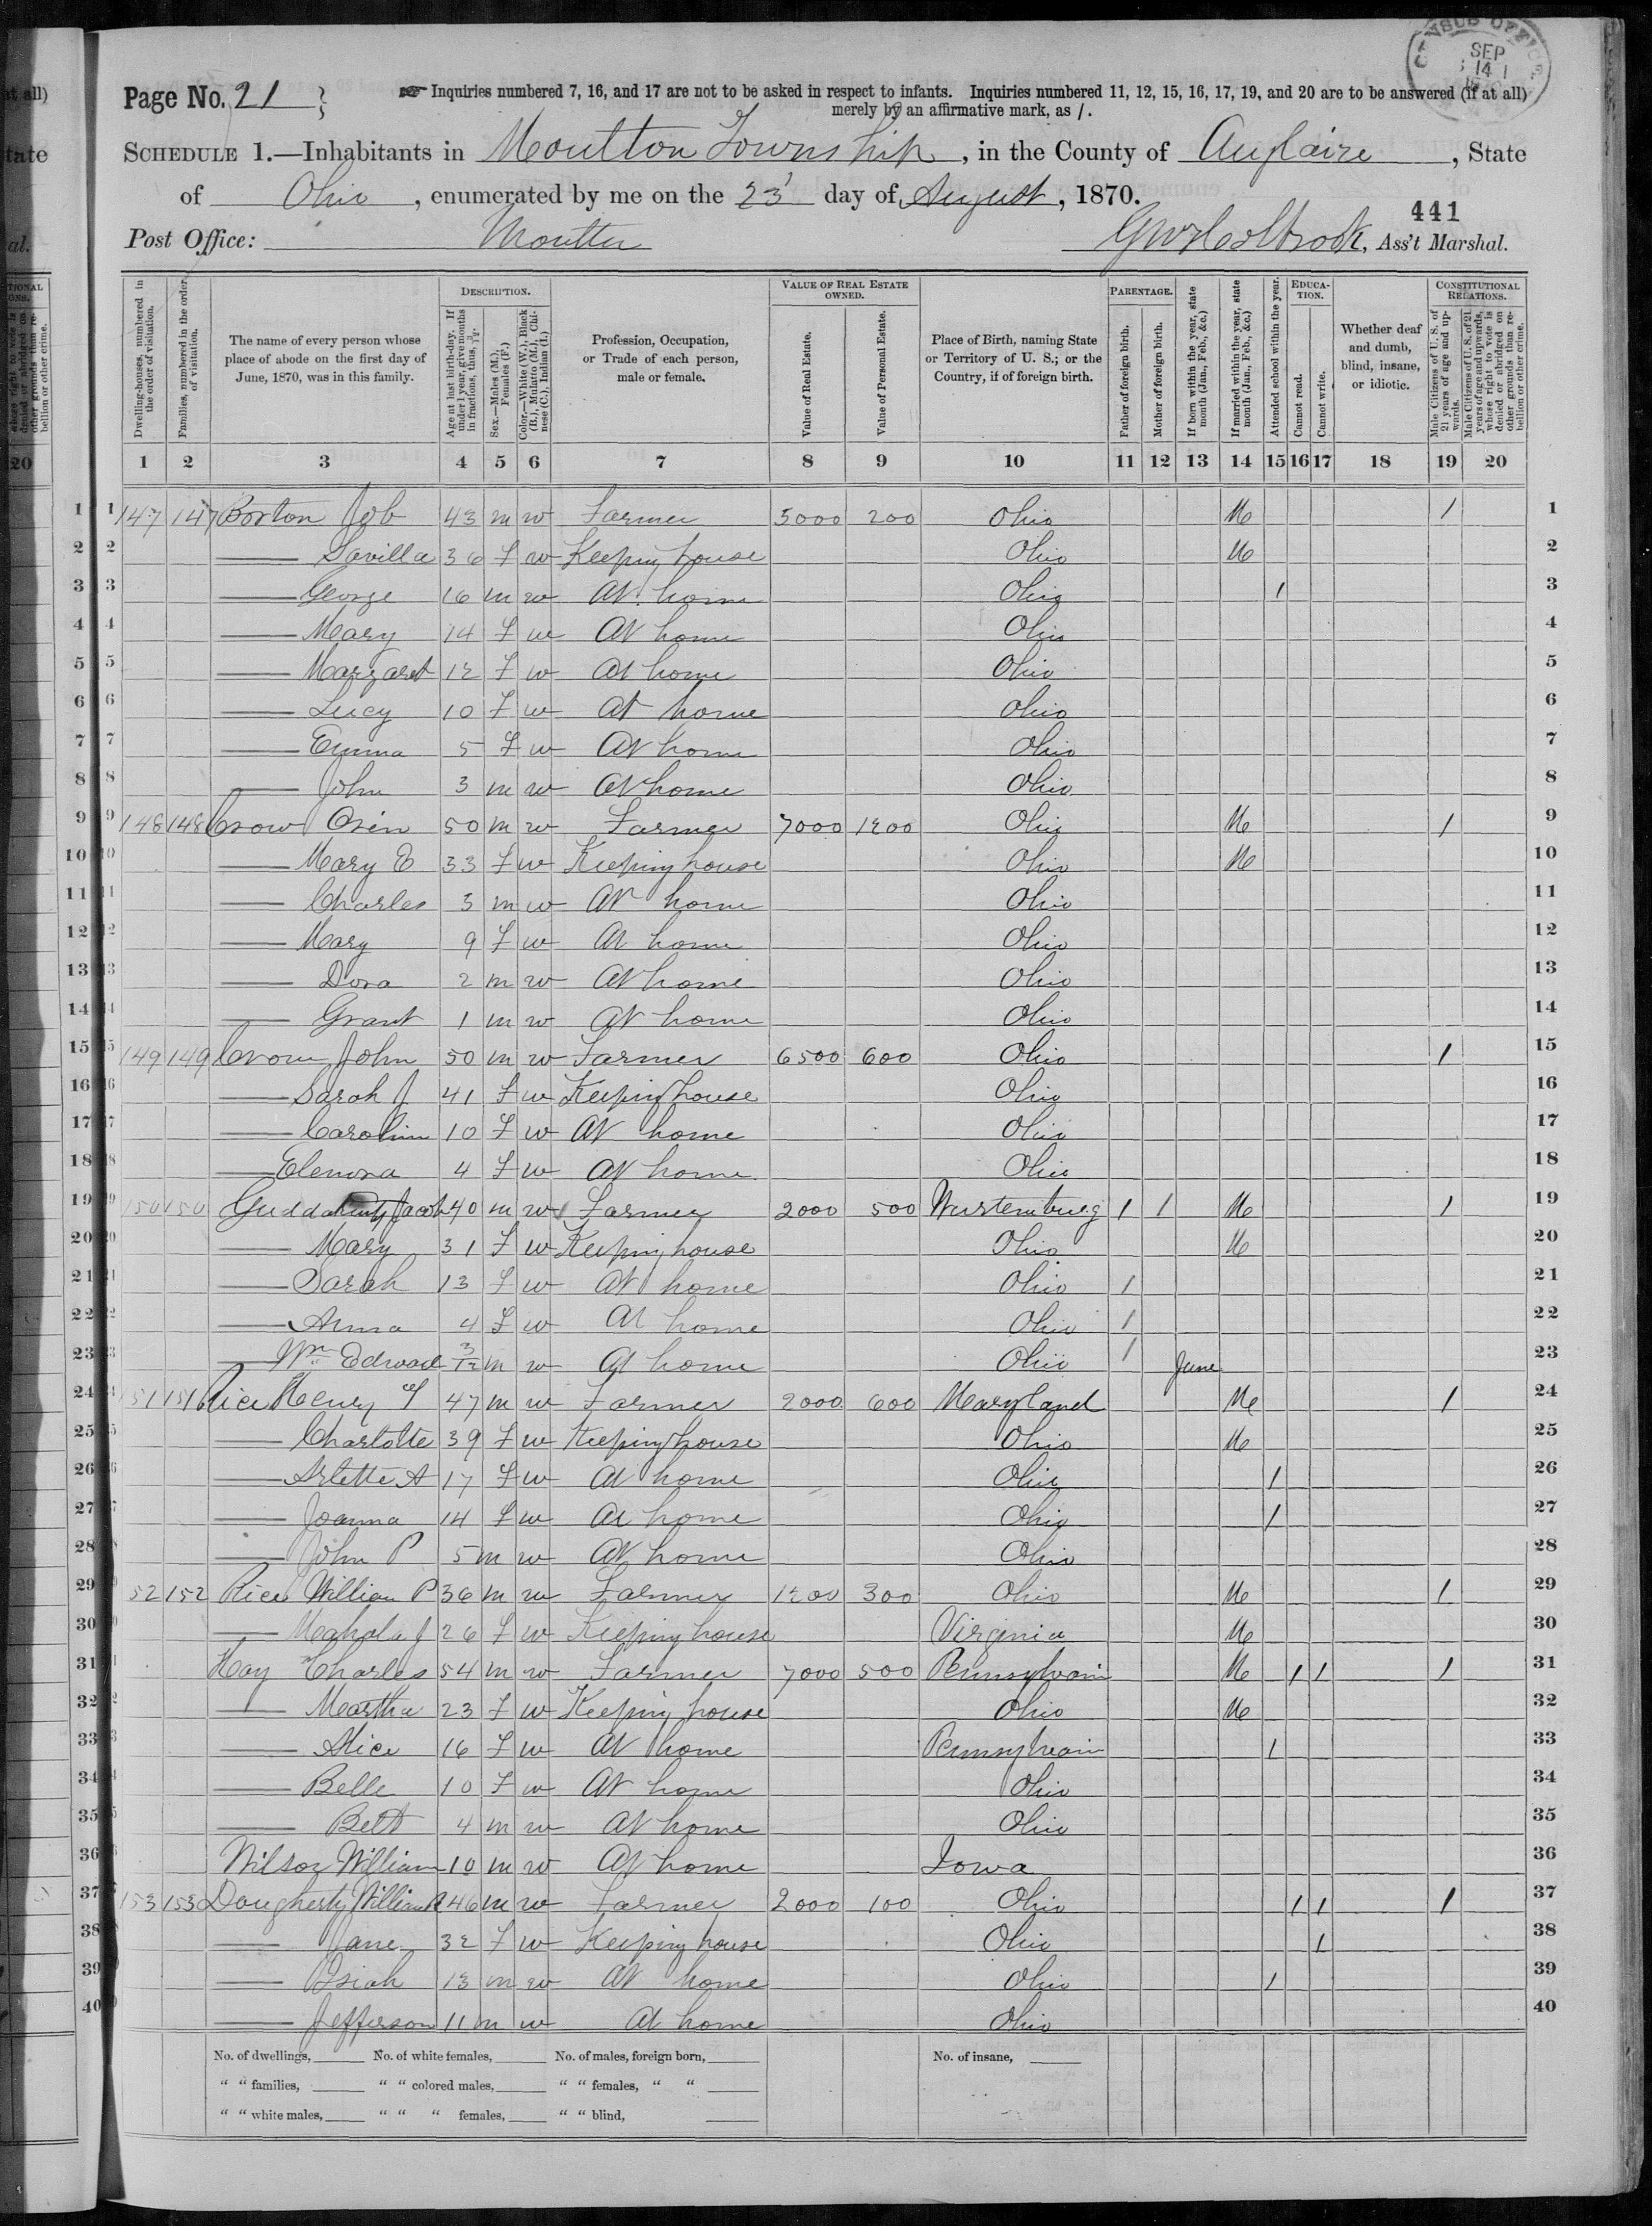 CENSUS OFFICE SEP 14
Page No. 21
Inquiries numbered 7, 16, and 17 are not to be asked in respect to infants. Inquiries numbered 11, 12, 15, 16, 17, 19, and 20 are to be answered (if at all)
merely by an affirmative mark, as /.
SCHEDULE 1.—Inhabitants in Moulton Township, in the County of Auglaize, State
of Ohio, enumerated by me on the 23' day of August, 1870.
441
Post Office: Moulton GW Holbrook, Ass't Marshal.
Dwelling-houses, numbered in the order of visitation.
Families, numbered in the order of visitation.
The name of every person whose place of abode on the first day of June, 1870, was in this family.
DESCRIPTION.
Age at last birth-day. If under 1 year, give months in fractions, thus, 3/12.
Sex.—Males (M.), Females (F.)
Color.—White (W.), Black (B.), Mulatto (M.), Chinese (C.), Indian (I.)
Profession, Occupation, or Trade of each person, male or female.
VALUE OF REAL ESTATE OWNED.
Value of Real Estate.
Value of Personal Estate.
Place of Birth, naming State or Territory of U. S.; or the Country, if of foreign birth.
PARENTAGE.
Father of foreign birth.
Mother of foreign birth.
If born within the year, state month (Jan., Feb., &c.)
If married within the year, state month (Jan., Feb., &c.)
Attended school within the year.
EDUCATION.
Cannot read.
Cannot write.
Whether deaf and dumb, blind, insane, or idiotic.
CONSTITUTIONAL RELATIONS.
Male Citizens of U. S. of 21 years of age and upwards.
Male Citizens of U. S. of 21 years of age and upwards, whose right to vote is denied or abridged on other grounds than rebellion or other crime.
1 2 3 4 5 6 7 8 9 10 11 12 13 14 15 16 17 18 19 20
1 147 147 Borton Job 43 m w Farmer 5000 200 Ohio M / 1
2 — Savilla 36 F w Keeping house Ohio M 2
3 — George 16 m w At home Ohio / 3
4 — Mary 14 F w At home Ohio 4
5 — Margaret 12 F w At home Ohio 5
6 — Lucy 10 F w At home Ohio 6
7 — Emma 5 F w At home Ohio 7
8 — John 3 m w At home Ohio 8
9 148 148 Crow Orin 50 m w Farmer 7000 1200 Ohio M / 9
10 — Mary E 33 F w Keeping house Ohio M 10
11 — Charles 3 m w At home Ohio 11
12 — Mary 9 F w At home Ohio 12
13 — Dora 2 m w At home Ohio 13
14 — Grant 1 m w At home Ohio 14
15 149 149 Crow John 50 m w Farmer 6500 600 Ohio / 15
16 — Sarah J 41 F w Keeping house Ohio 16
17 — Carolin 10 F w At home Ohio 17
18 — Elenora 4 F w At home Ohio 18
19 150 150 Jacob 40 m w Farmer 2000 500 Wurtemburg / / M / 19
20 — Mary 31 F w Keeping house Ohio M 20
21 — Sarah 13 F w At home Ohio / 21
22 — Anna 4 F w At home Ohio / 22
23 — Wm Edward 3/12 m w At home Ohio / June 23
24 151 151 Rice Henry T 47 m w Farmer 2000 600 Maryland M / 24
25 — Charlotte 39 F w Keeping house Ohio M 25
26 — Arlette A 17 F w At home Ohio / 26
27 — Joanna 14 F w At home Ohio / 27
28 — John P 5 m w At home Ohio 28
29 152 152 Rice William P 36 m w Farmer 1200 300 Ohio M / 29
30 — Mahala J 26 F w Keeping house Virginia M 30
31 Hay Charles 54 m w Farmer 7000 500 Pennsylvain M / / / 31
32 — Martha 23 F w Keeping house Ohio M 32
33 — Alice 16 F w At home Pennsylvain / 33
34 — Belle 10 F w At home Ohio 34
35 — Bell 4 m w At home Ohio 35
36 Wilson William 10 m w At home Iowa 36
37 153 153 Dougherty William R 46 m w Farmer 2000 100 Ohio / / / 37
38 — Jane 32 F w Keeping house Ohio / 38
39 — Isiah 13 m w At home Ohio / 39
40 — Jefferson 11 m w At home Ohio 40
No. of dwellings, No. of white females, No. of males, foreign born, No. of insane,
" " families, " " colored males, " " females, " "
" " white males, " " " females, " " blind,